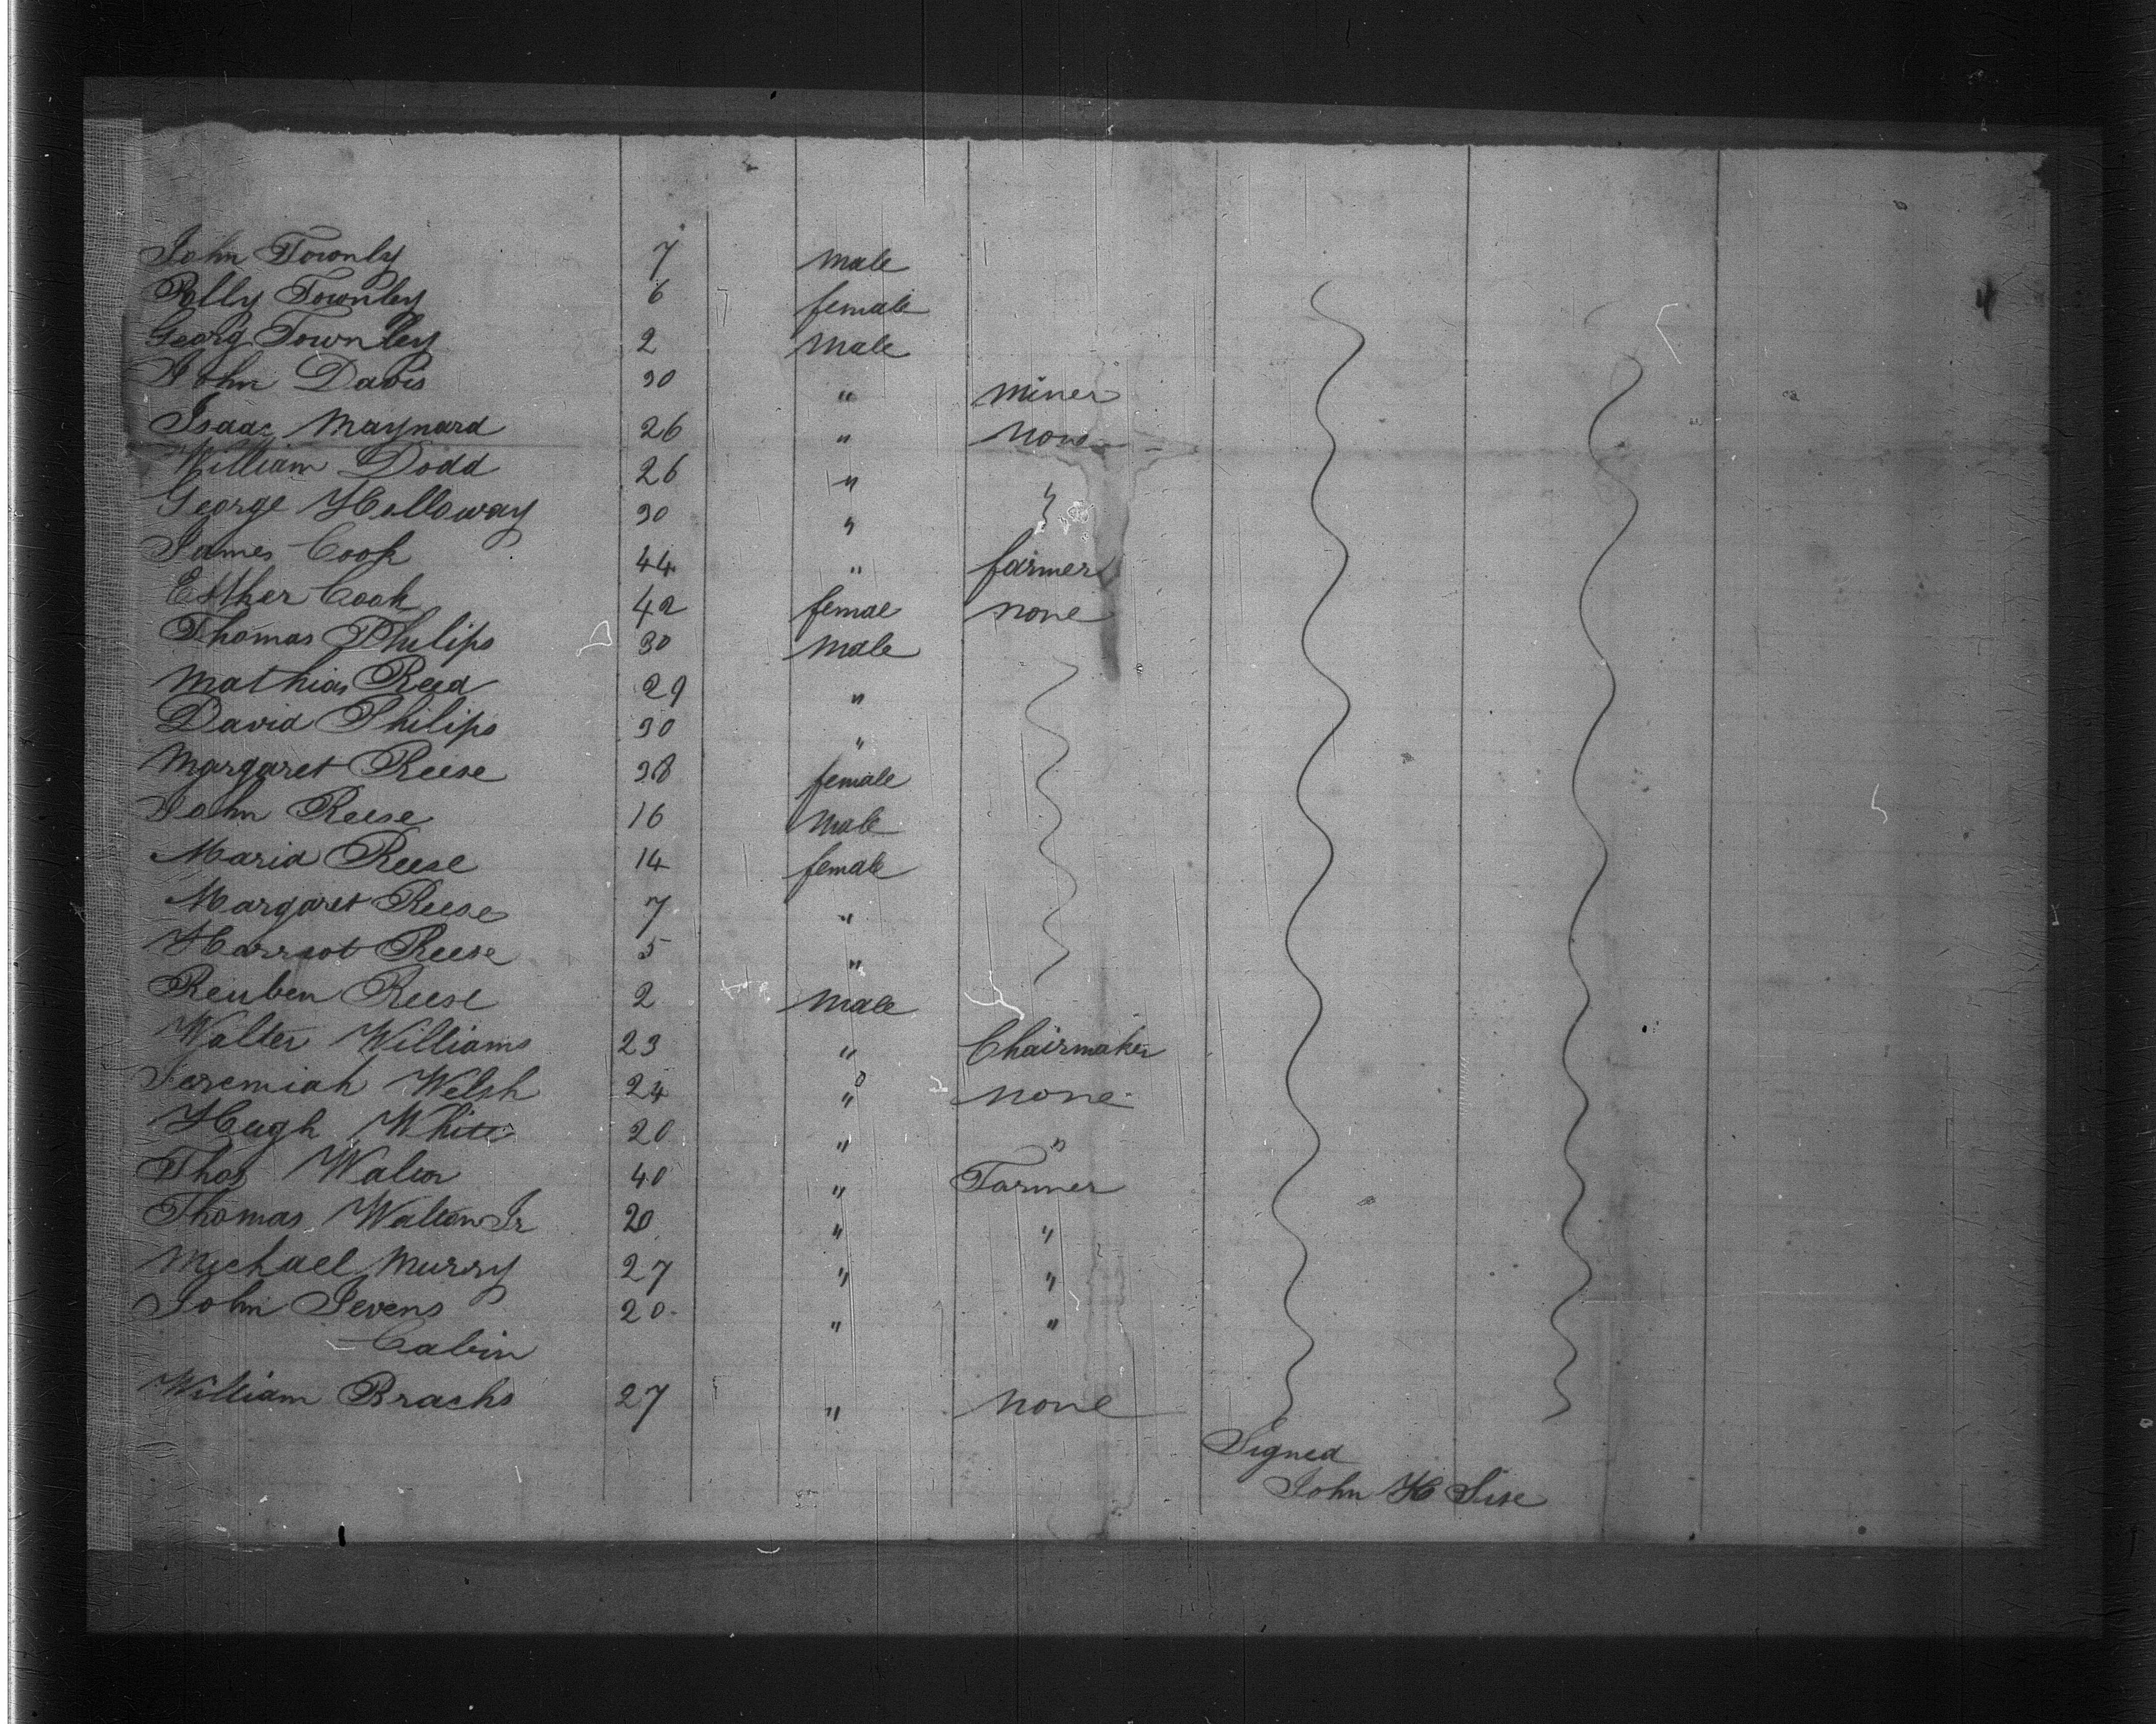 John Townly 7 male
Polly Townley 6 female
Georg Townley 2 Male
John Davis 30 " miner
Isaac Maynard 26 " none
William Dodd 26 "
George Holloway 30 " "
James Cook 44 " farmer
Esther Cook 42 femae none
Thomas Philips 30 Male
Mathias Reed 29 "
David Philips 30 "
Margaret Reese 38 female
John Reese 16 Male
Maria Reese 14 female
Margaret Reese 7 "
Harriot Reese 5 "
Reuben Reese 2 Male
Walter Williams 23 " Chairmaker
Jeremiah Welsh 24 " none
Hugh White 20 " "
Thos Walton 40 " Farmer
Thomas Walton Jr 20 " "
Michael Murry 27 " "
John Jevens 20 " "
Cabin
William Brachs 27 " none
Signed
John H Sise